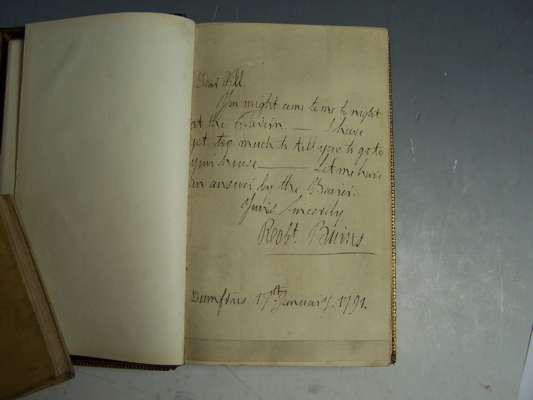 Dear Will
You might come to me to night
at the Tavern. — I have
got too much to tell you to go to
your house — Let me have
an answer by the Bearer.
Yours Sincerely
Robt Burns
Dumfries 17th January. 1791.